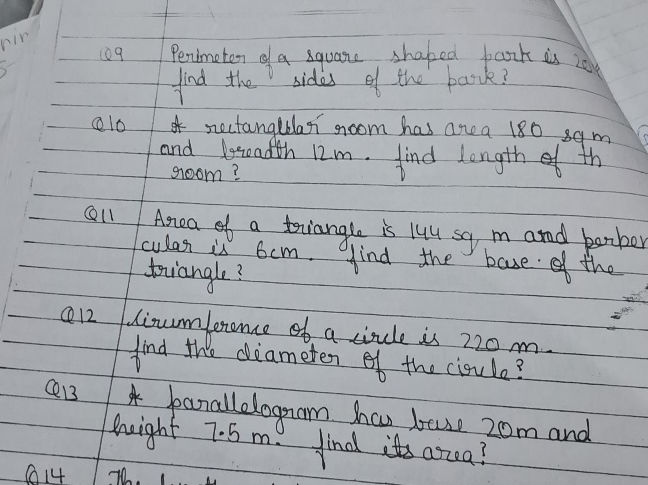 Q9 Perimeter of a square shaped park is
find the sides of the park?
Q10 A rectangular room has area 180 sq m
and breadth 12m. find length of th
room?
Q11 Area of a triangle is 144 sq m and perpen
cular is 6cm. find the base of the
triangle?
Q12 Cirumference of a circle is 220 m.
find the diameter of the circle?
Q13 A parallelogram has base 20m and
height 7.5 m. find its area?
Q14 The